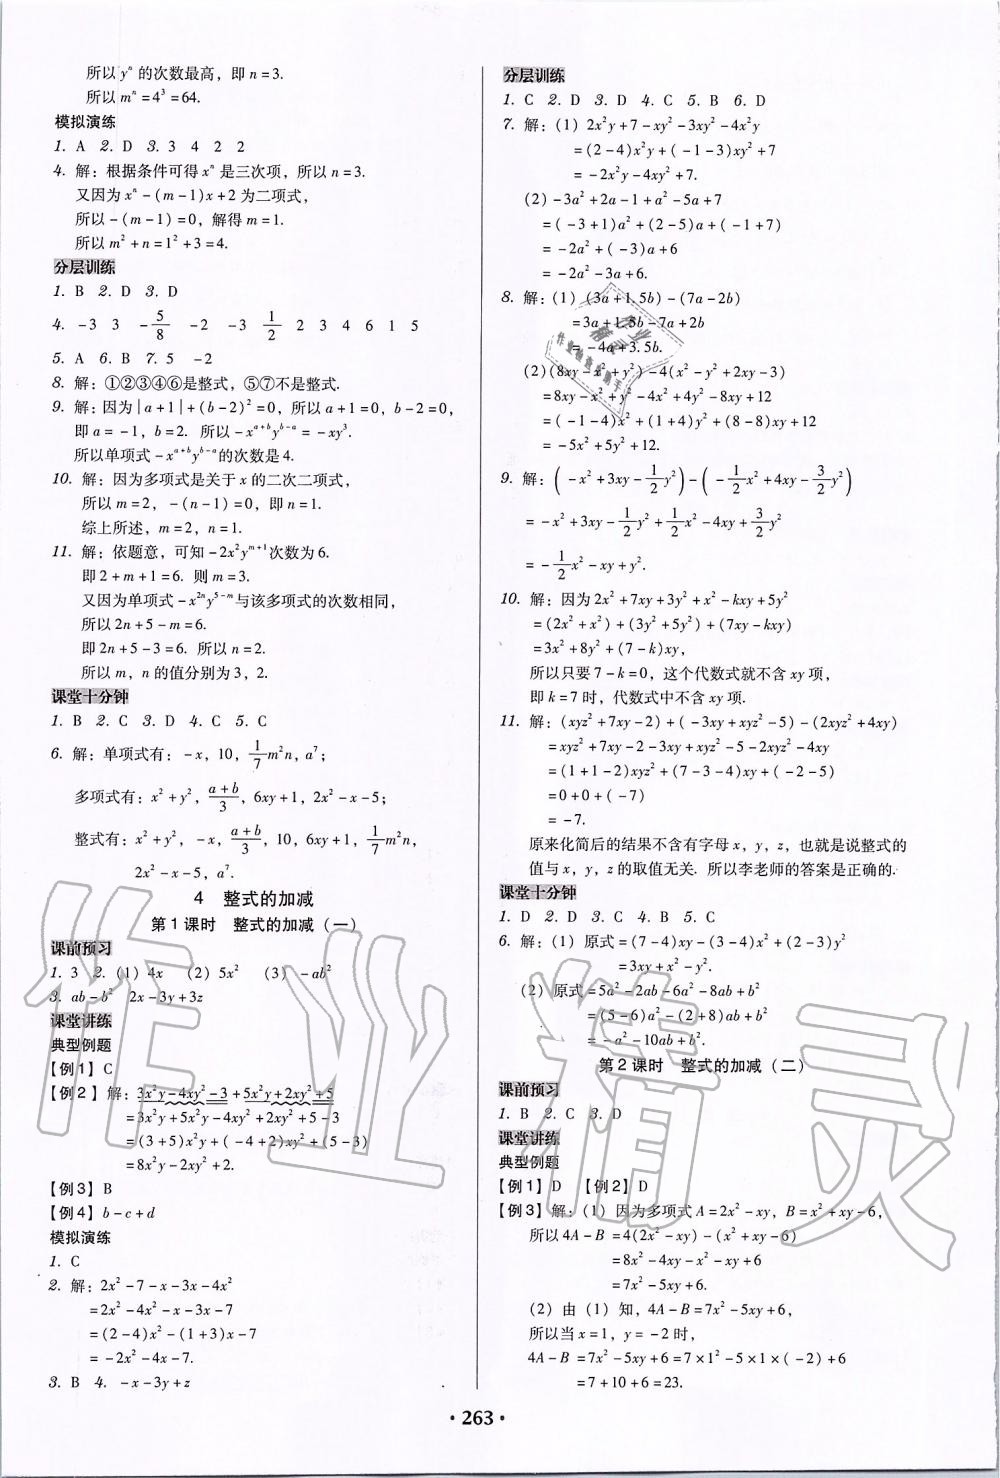 所以 yⁿ 的次数最高，即 n=3.
所以 mⁿ=4³=64.
模拟演练
1. A 2. D 3. 3 4 2 2
4. 解：根据条件可得 xⁿ 是三次项，所以 n=3.
又因为 xⁿ-(m-1)x+2 为二项式，
所以-(m-1)=0，解得 m=1.
所以 m²+n=1²+3=4.
分层训练
1. B 2. D 3. D
4. -3 3 -5/8 -2 -3 1/2 2 3 4 6 1 5
5. A 6. B 7. 5 -2
8. 解：①②③④⑥是整式，⑤⑦不是整式.
9. 解：因为|a+1|+(b-2)²=0，所以 a+1=0，b-2=0，
即 a=-1，b=2. 所以-x^(a+b)y^(b-a)=-xy³.
所以单项式-x^(a+b)y^(b-a)的次数是 4.
10. 解：因为多项式是关于 x 的二次二项式，
所以 m=2，-(n-1)=0，即 n=1.
综上所述，m=2，n=1.
11. 解：依题意，可知-2x²y^(m+1)次数为 6.
即 2+m+1=6. 则 m=3.
又因为单项式-x^(2n)y^(5-m)与该多项式的次数相同，
所以 2n+5-m=6.
即 2n+5-3=6. 所以 n=2.
所以 m，n 的值分别为 3，2.
课堂十分钟
1. B 2. C 3. D 4. C 5. C
6. 解：单项式有：-x，10，1/7m²n，a⁷；
多项式有：x²+y²，(a+b)/3，6xy+1，2x²-x-5；
整式有：x²+y²，-x，(a+b)/3，10，6xy+1，1/7m²n，
2x²-x-5，a⁷.
4 整式的加减
第 1 课时 整式的加减（一）
课前预习
1. 3 2. (1) 4x (2) 5x² (3) -ab²
3. ab-b² 2x-3y+3z
课堂讲练
典型例题
【例 1】C
【例 2】解：3x²y-4xy²-3+5x²y+2xy²+5
=3x²y+5x²y-4xy²+2xy²+5-3
=(3+5)x²y+(-4+2)xy²+(5-3)
=8x²y-2xy²+2.
【例 3】B
【例 4】b-c+d
模拟演练
1. C
2. 解：2x²-7-x-3x-4x²
=2x²-4x²-x-3x-7
=(2-4)x²-(1+3)x-7
=-2x²-4x-7.
3. B 4. -x-3y+z
分层训练
1. C 2. D 3. D 4. C 5. B 6. D
7. 解：(1) 2x²y+7-xy²-3xy²-4x²y
=(2-4)x²y+(-1-3)xy²+7
=-2x²y-4xy²+7.
(2)-3a²+2a-1+a²-5a+7
=(-3+1)a²+(2-5)a+(-1+7)
=-2a²+(-3)a+6
=-2a²-3a+6.
8. 解：(1) (3a+1.5b)-(7a-2b)
=3a+1.5b-7a+2b
=-4a+3.5b.
(2)(8xy-x²+y²)-4(x²-y²+2xy-3)
=8xy-x²+y²-4x²+4y²-8xy+12
=(-1-4)x²+(1+4)y²+(8-8)xy+12
=-5x²+5y²+12.
9. 解：(-x²+3xy-1/2y²)-(-1/2x²+4xy-3/2y²)
=-x²+3xy-1/2y²+1/2x²-4xy+3/2y²
=-1/2x²-xy+y².
10. 解：因为 2x²+7xy+3y²+x²-kxy+5y²
=(2x²+x²)+(3y²+5y²)+(7xy-kxy)
=3x²+8y²+(7-k)xy，
所以只要 7-k=0，这个代数式就不含 xy 项，
即 k=7 时，代数式中不含 xy 项.
11. 解：(xyz²+7xy-2)+(-3xy+xyz²-5)-(2xyz²+4xy)
=xyz²+7xy-2-3xy+xyz²-5-2xyz²-4xy
=(1+1-2)xyz²+(7-3-4)xy+(-2-5)
=0+0+(-7)
=-7.
原来化简后的结果不含有字母 x，y，z，也就是说整式的
值与 x，y，z 的取值无关. 所以李老师的答案是正确的.
课堂十分钟
1. D 2. D 3. C 4. B 5. C
6. 解：(1) 原式=(7-4)xy-(3-4)x²+(2-3)y²
=3xy+x²-y².
(2) 原式=5a²-2ab-6a²-8ab+b²
=(5-6)a²-(2+8)ab+b²
=-a²-10ab+b².
第 2 课时 整式的加减（二）
课前预习
1. B 2. C 3. D
课堂讲练
典型例题
【例 1】D 【例 2】D
【例 3】解：(1) 因为多项式 A=2x²-xy，B=x²+xy-6，
所以 4A-B=4(2x²-xy)-(x²+xy-6)
=8x²-4xy-x²-xy+6
=7x²-5xy+6.
(2) 由 (1) 知，4A-B=7x²-5xy+6，
所以当 x=1，y=-2 时，
4A-B=7x²-5xy+6=7×1²-5×1×(-2)+6
=7+10+6=23.
·263·
作业精灵